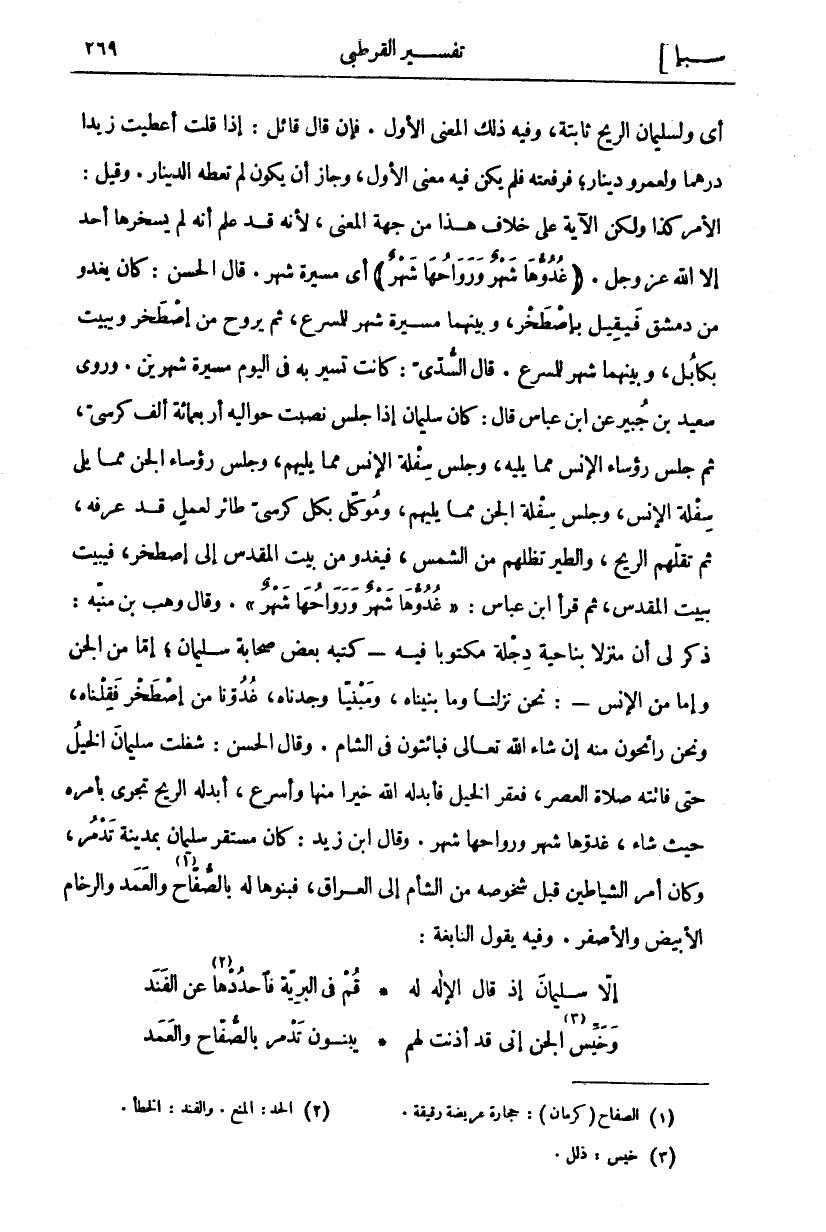 سبإ] تفسير القرطبي ٢٦٩
أى ولسليمان الريح ثابتة، وفيه ذلك المعنى الأول . فإن قال قائل : إذا قلت أعطيت زيدا
درهما ولعمرو دينار؛ فرفعته فلم يكن فيه معنى الأول، وجاز أن يكون لم تعطه الدينار . وقيل :
الأمر كذا ولكن الآية على خلاف هذا من جهة المعنى ، لأنه قد علم أنه لم يسخرها أحد
إلا الله عز وجل . (غُدُوُّهَا شَهْرٌ وَرَوَاحُهَا شَهْرٌ) أى مسيرة شهر . قال الحسن : كان يغدو
من دمشق فَيَقِيل بإصْطَخْر، وبينهما مسيرة شهر للسرع، ثم يروح من إصْطَخر ويبيت
بكابُل، وبينهما شهر للسرع . قال السُّدّى : كانت تسير به فى اليوم مسيرة شهرين . وروى
سعيد بن جُبير عن ابن عباس قال : كان سليمان إذا جلس نصبت حواليه أربعمائة ألف كرسىّ،
ثم جلس رؤساء الإنس مما يليه، وجلس سِفْلة الإنس مما يليهم، وجلس رؤساء الجن مما يلى
سِفْلة الإنس، وجلس سِفْلة الجن مما يليهم، ومُوَكَّل بكل كرسىّ طائر لعملٍ قد عرفه،
ثم تقلّهم الريح ، والطير تظلهم من الشمس ، فيغدو من بيت المقدس إلى إصطخر، فيبيت
ببيت المقدس، ثم قرأ ابن عباس : « غُدُوُّهَا شَهْرٌ وَرَوَاحُهَا شَهْرٌ » . وقال وهب بن منبّه :
ذكر لى أن منزلا بناحية دِجْلة مكتوبا فيه — كتبه بعض صحابة سليمان ؛ إمّا من الجن
وإما من الإنس — : نحن نزلنا وما بنيناه ، ومَبْنِيًّا وجدناه، غُدُوّنا من إصْطَخْر فَقِلْناه،
ونحن رائحون منه إن شاء الله تعالى فبائتون فى الشام . وقال الحسن : شغلت سليمانَ الخيلُ
حتى فاتته صلاة العصر، فعقر الخيل فأبدله الله خيرا منها وأسرع ، أبدله الريح تجرى بأمره
حيث شاء ، غدوّها شهر ورواحها شهر . وقال ابن زيد : كان مستقر سليمان بمدينة تَدْمُر ،
وكان أمر الشياطين قبل شخوصه من الشأم إلى العراق، فبنوها له بالصُّفَّاح (١) والعَمَد والرخام
الأبيض والأصفر . وفيه يقول النابغة :
إلّا سليمانَ إذ قال الإله له * قُمْ فى البريّة فآحدُدْها (٢) عن الفَنَد
وَخَيِّس (٣) الجن إنى قد أذنت لهم * يبنون تَدْمر بالصُّفّاح والعَمَد
(١) الصفاح (كرمان) : حجارة عريضة رقيقة . (٢) الحد : المنع . والفند : الخطأ .
(٣) خيس : ذلل .